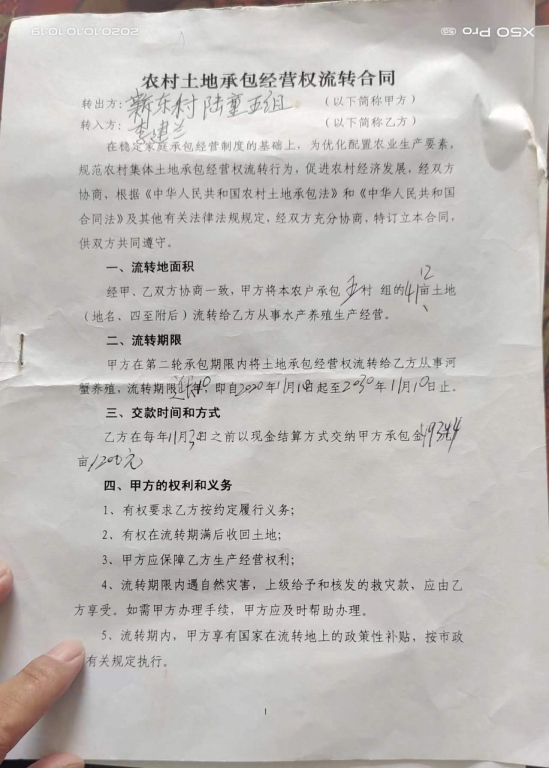 XSO Pro 5G
2020.10.10 10:19
农村土地承包经营权流转合同
转出方：新东村陆重五组 （以下简称甲方）
转入方：李建兰 （以下简称乙方）
在稳定家庭承包经营制度的基础上，为优化配置农业生产要素，
规范农村集体土地承包经营权流转行为，促进农村经济发展，经双方
协商，根据《中华人民共和国农村土地承包法》和《中华人民共和国
合同法》及其他有关法律法规规定，经双方充分协商，特订立本合同，
供双方共同遵守。
一、流转地面积
经甲、乙双方协商一致，甲方将本农户承包 五村 组的41.12亩土地
（地名、四至附后）流转给乙方从事水产养殖生产经营。
二、流转期限
甲方在第二轮承包期限内将土地承包经营权流转给乙方从事河
蟹养殖，流转期限 10年，即自2020年11月1日起至2030年11月10日止。
三、交款时间和方式
乙方在每年11月3日之前以现金结算方式交纳甲方承包金49344
亩1200元
四、甲方的权利和义务
1、有权要求乙方按约定履行义务；
2、有权在流转期满后收回土地；
3、甲方应保障乙方生产经营权利；
4、流转期限内遇自然灾害，上级给予和核发的救灾款，应由乙
方享受。如需甲方办理手续，甲方应及时帮助办理。
5、流转期内，甲方享有国家在流转地上的政策性补贴，按市政
有关规定执行。
1